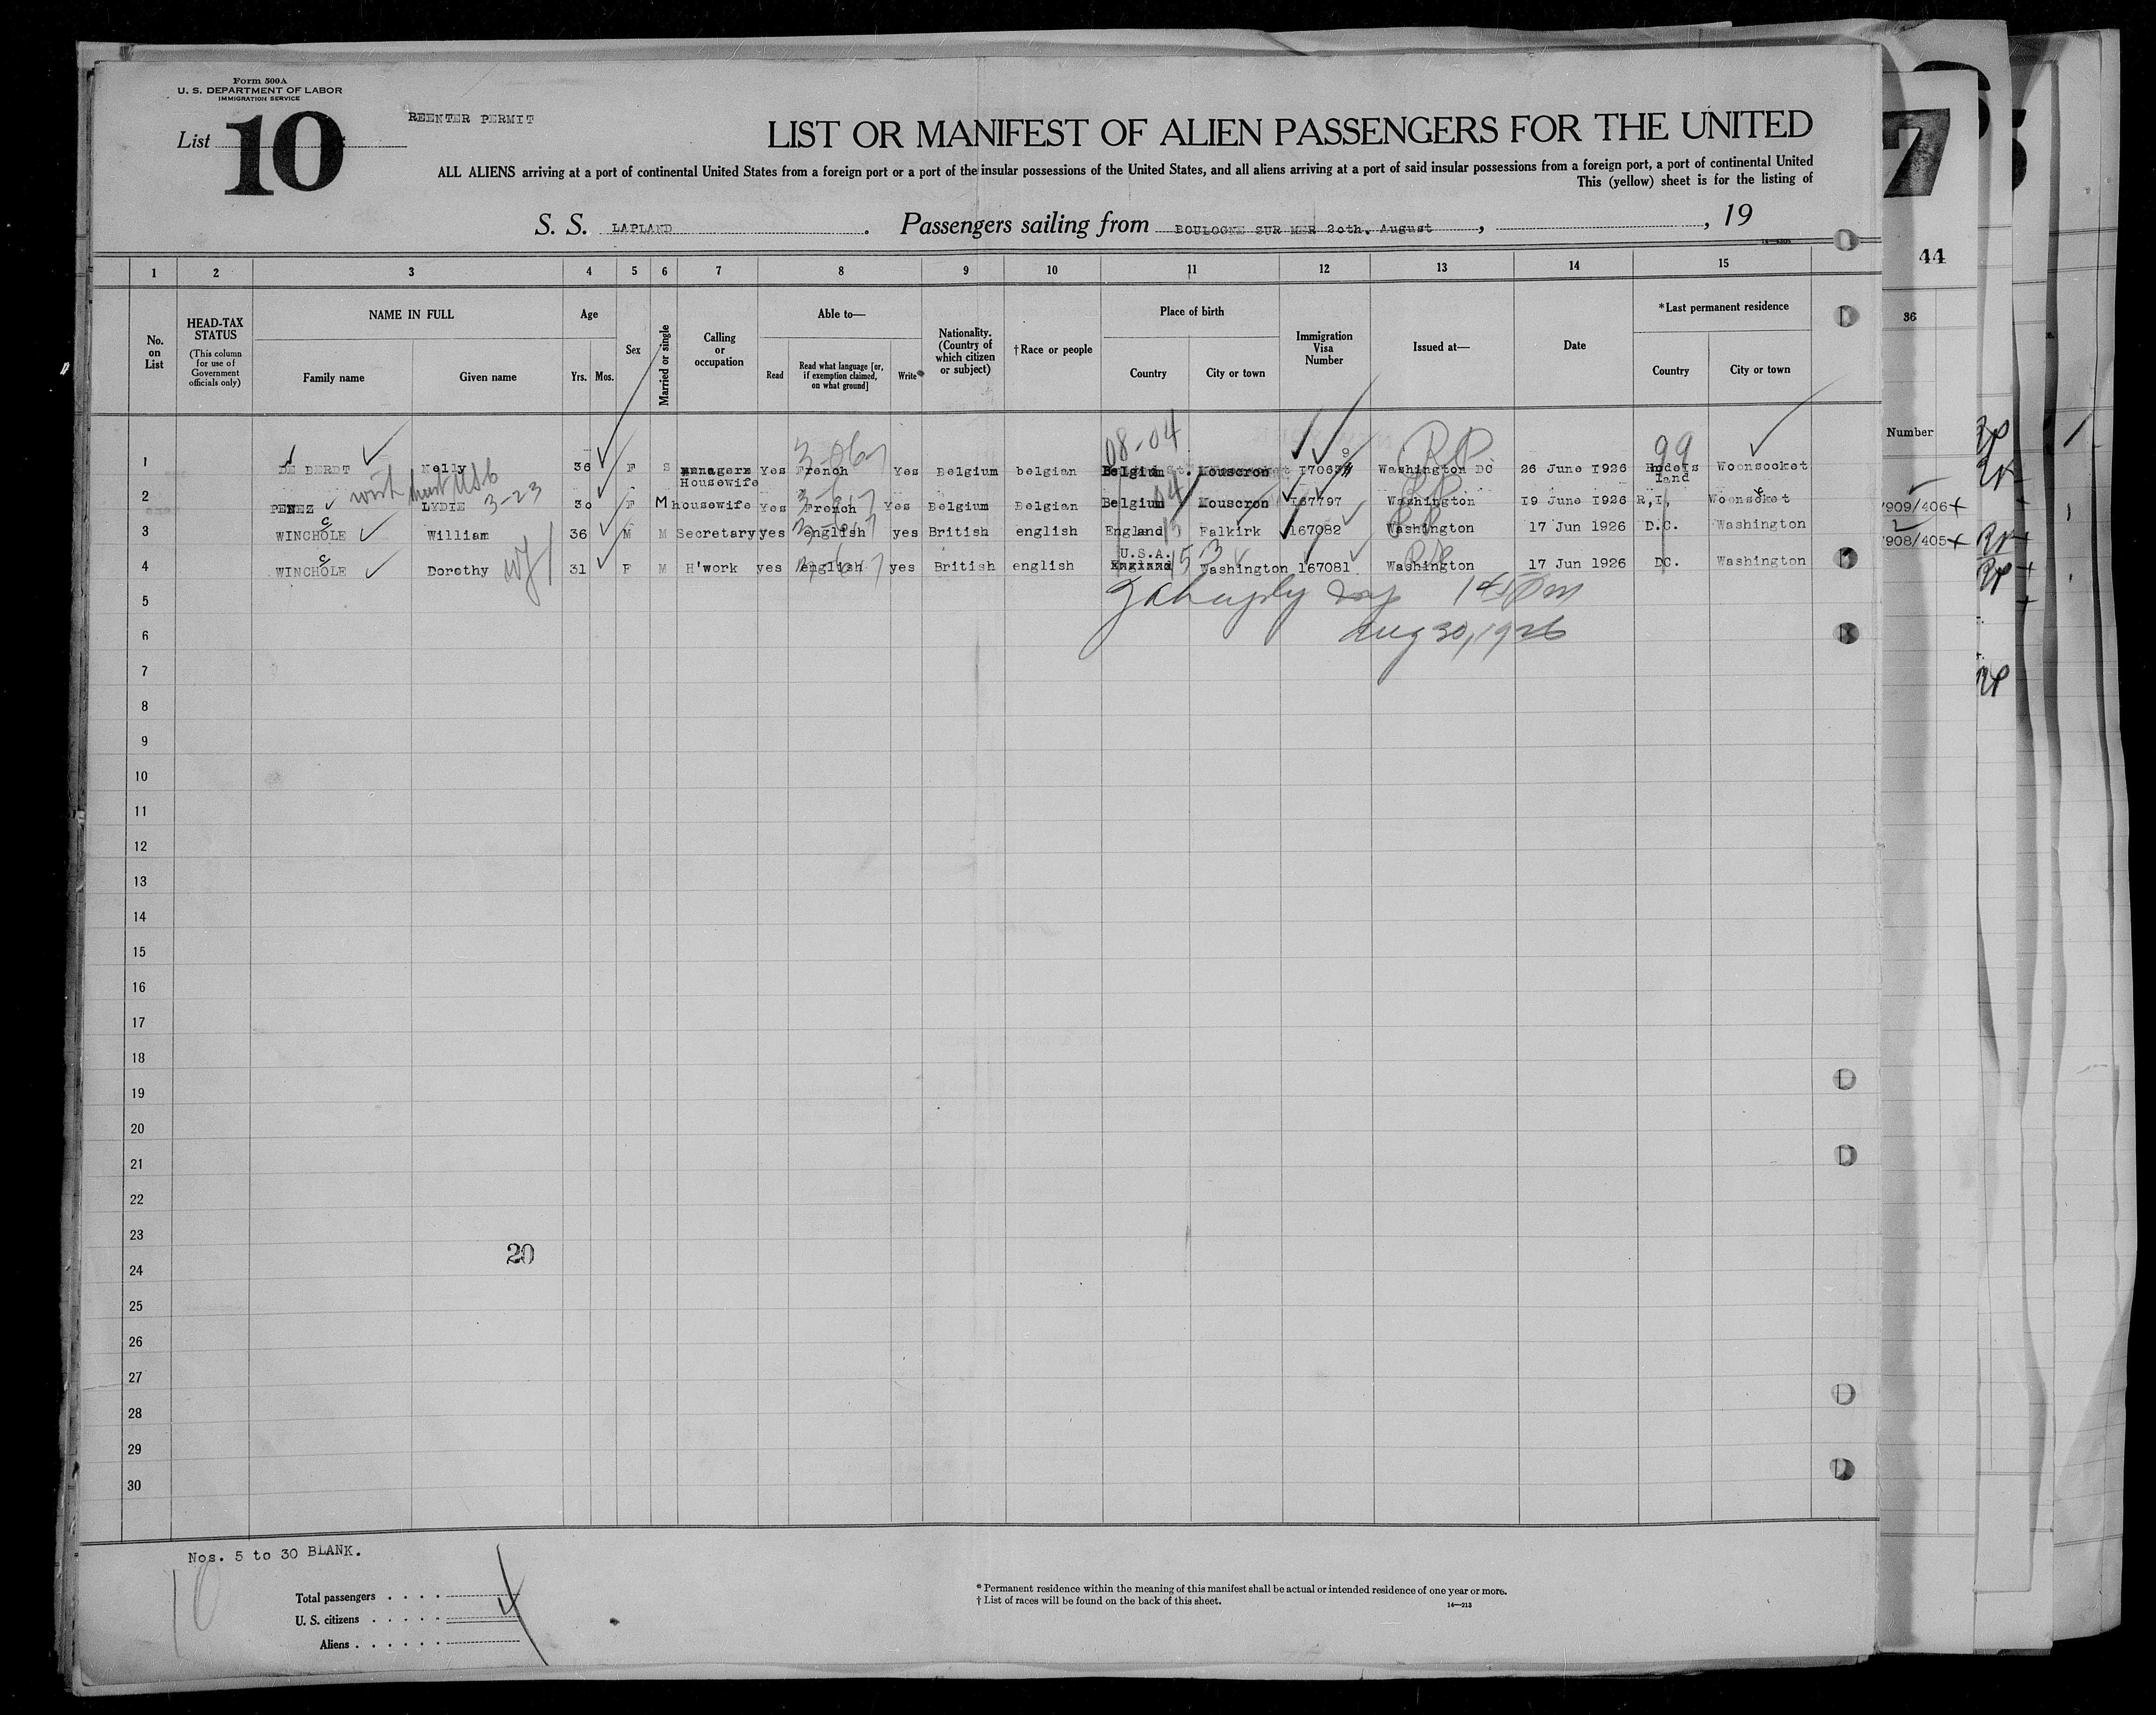 Form 500A
U. S. DEPARTMENT OF LABOR
IMMIGRATION SERVICE
List 10
REENTER PERMIT
LIST OR MANIFEST OF ALIEN PASSENGERS FOR THE UNITED
ALL ALIENS arriving at a port of continental United States from a foreign port or a port of the insular possessions of the United States, and all aliens arriving at a port of said insular possessions from a foreign port, a port of continental United
This (yellow) sheet is for the listing of
S. S. LAPLAND. Passengers sailing from BOULOGNE SUR MER 20th. August, , 19
1 2 3 4 5 6 7 8 9 10 11 12 13 14 15
No. on List
HEAD-TAX STATUS
(This column for use of Government officials only)
NAME IN FULL
Family name Given name
Age
Yrs. Mos.
Sex
Married or single
Calling or occupation
Able to—
Read Read what language [or, if exemption claimed, on what ground] Write
Nationality. (Country of which citizen or subject)
†Race or people
Place of birth
Country City or town
Immigration Visa Number
Issued at—
Date
*Last permanent residence
Country City or town
08-04 RP 99
1 DE BERDT Nelly 36 F S Housewife Yes French Yes Belgium belgian Belgium Mouscron Washington DC 26 June 1926 Woonsocket
3-23
2 PENEZ LYDIE 30 F M housewife Yes French Yes Belgium Belgian Belgium Mouscron 167797 Washington 19 June 1926 R,I, Woonsocket
3 WINCHOLE William 36 M M Secretary yes english yes British english England Falkirk 167082 Washington 17 Jun 1926 D.C. Washington
4 WINCHOLE Dorothy 31 F M H'work yes english yes British english U.S.A. England Washington 167081 Washington 17 Jun 1926 DC. Washington
5
6 Aug 30, 1926
7
8
9
10
11
12
13
14
15
16
17
18
19
20
21
22
23
20
24
25
26
27
28
29
30
Nos. 5 to 30 BLANK.
10
Total passengers
U. S. citizens
Aliens
4
* Permanent residence within the meaning of this manifest shall be actual or intended residence of one year or more.
† List of races will be found on the back of this sheet.
14—213
7
44
36
Number
7909/406
7908/405